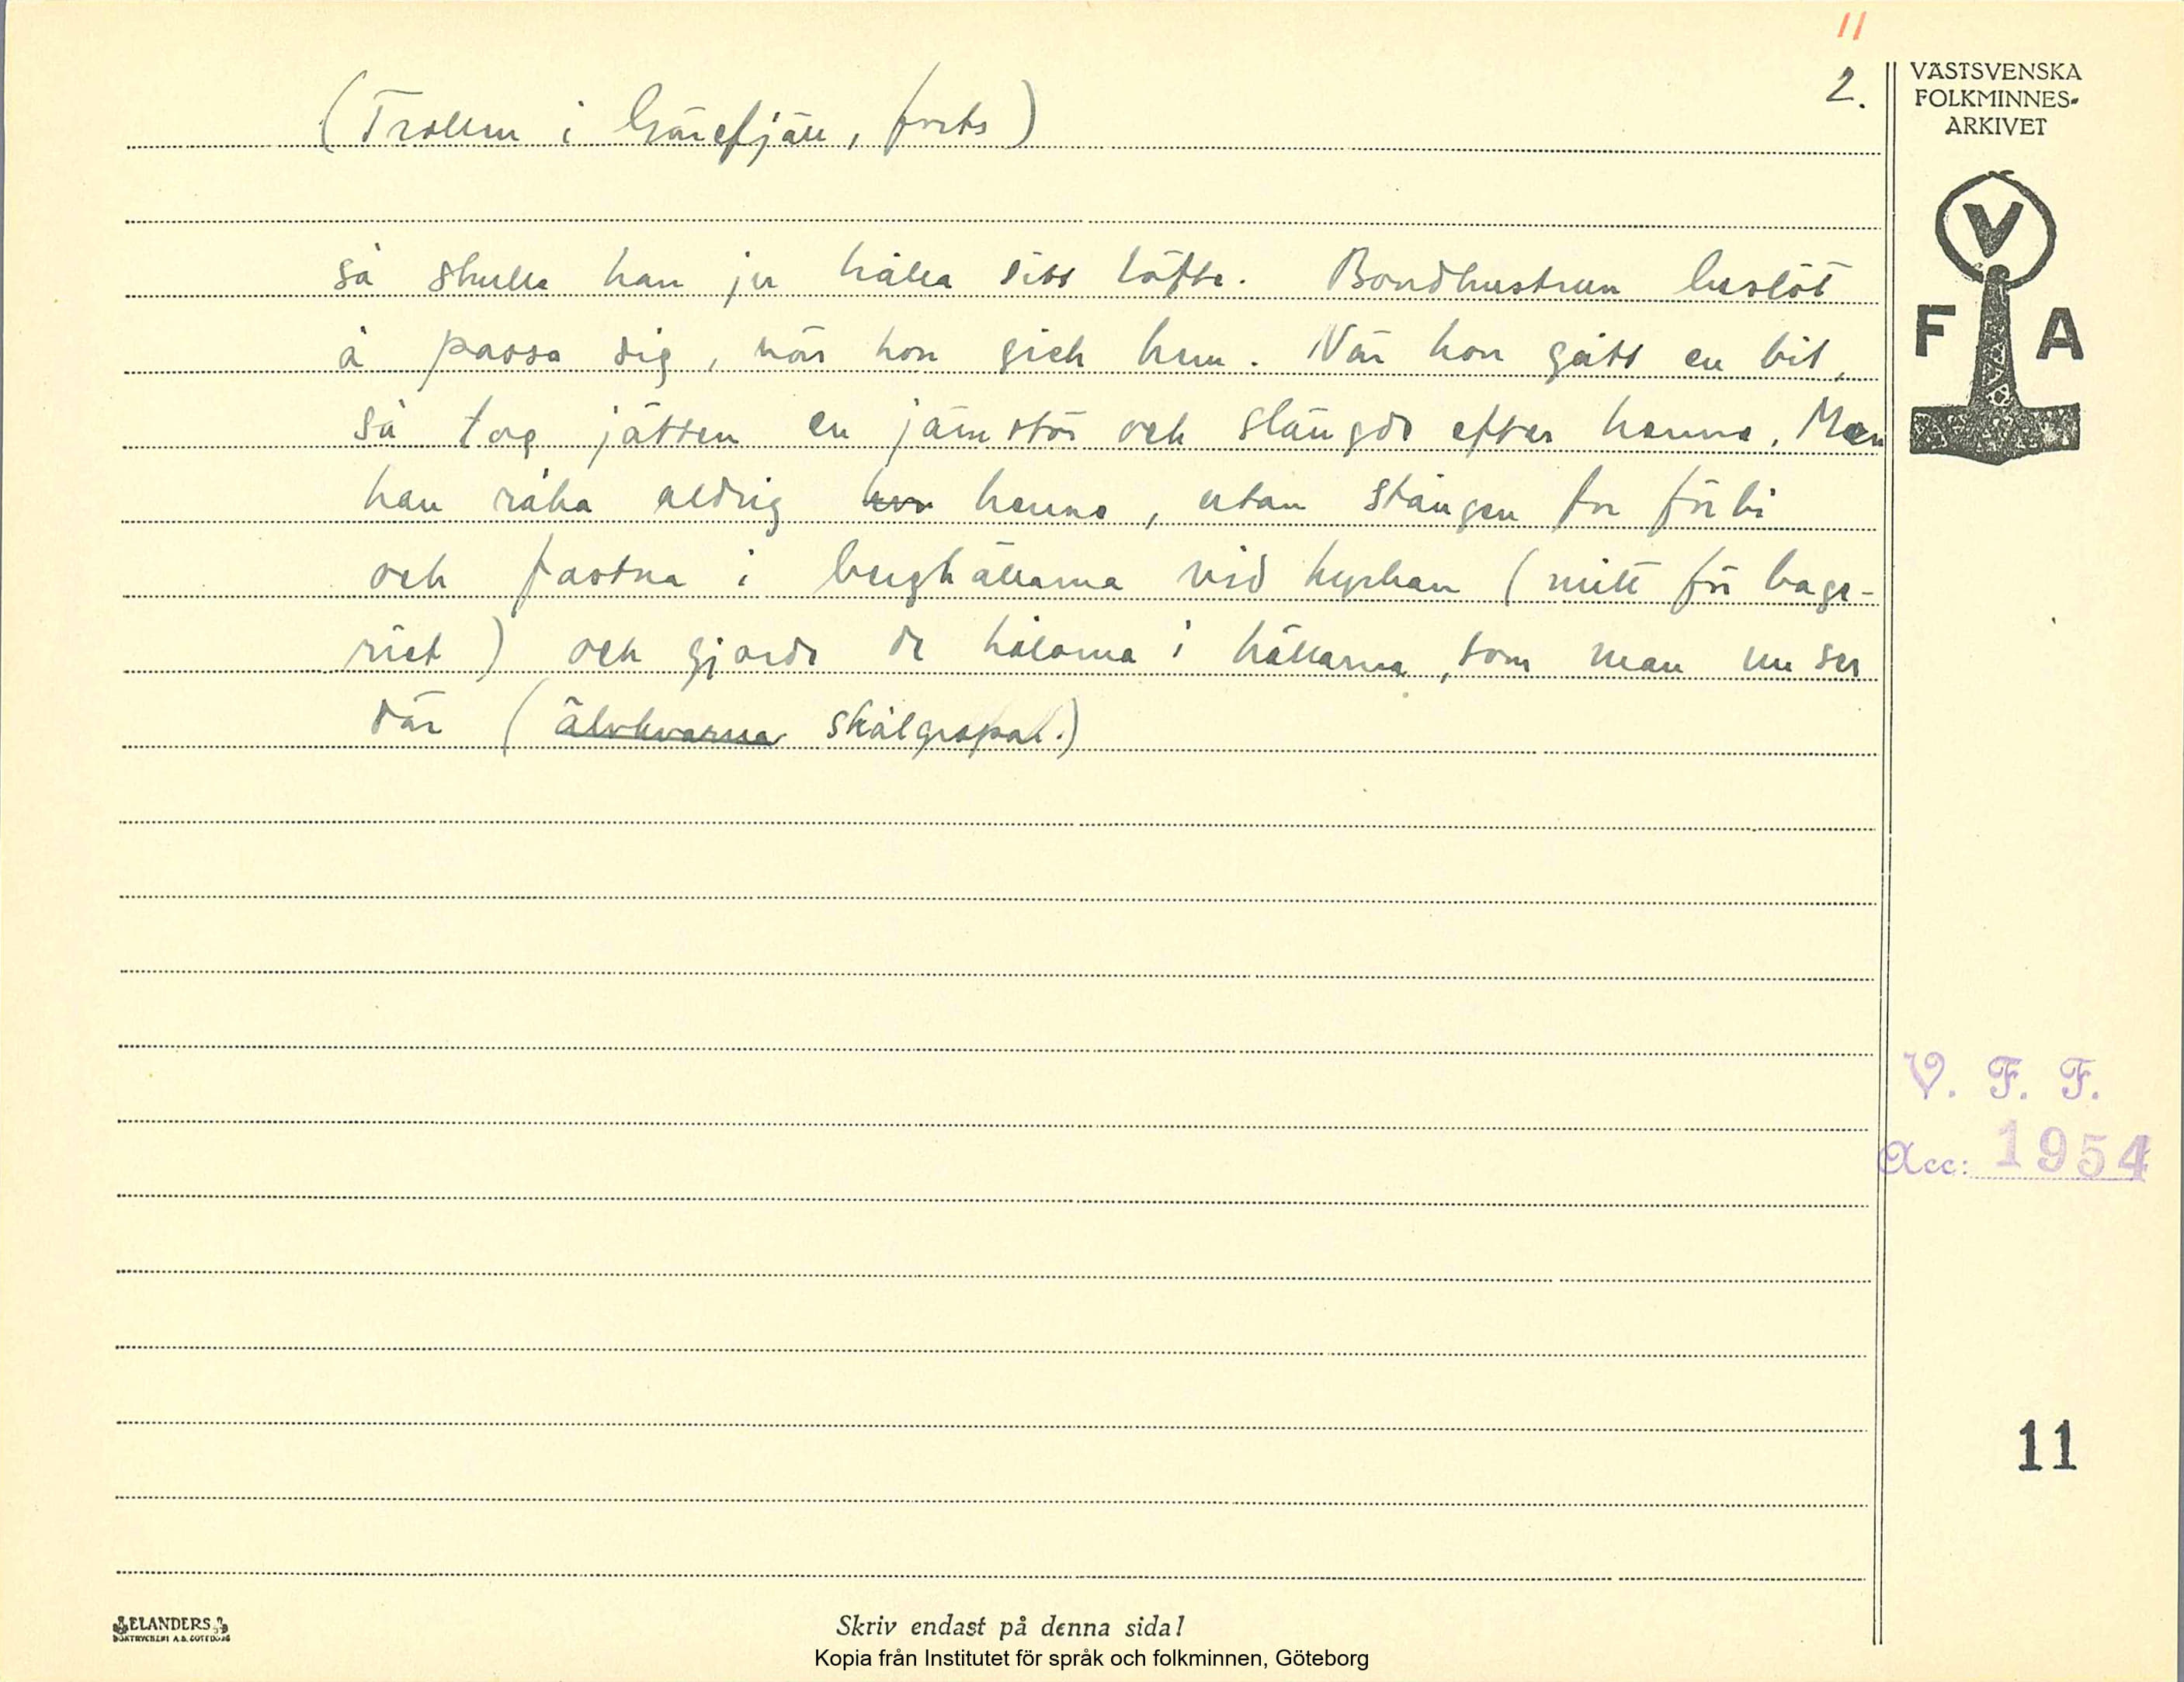 11
2.
VÄSTSVENSKA
FOLKMINNES-
ARKIVET
(Trollen i Gärefjäll, forts)
V
F A
så skulle han ju hålla sitt löfte. Bondhustrun beslöt
å passa sig, när hon gick hem. När hon gått en bit,
så tog jätten en järnstör och slängde efter henne. Men
han råka aldrig hon henne, utan stången for förbi
och fastna i berghällarna vid kyrkan (mitt för bage-
riet) och gjorde de hålorna i hällarna, som man nu ser
där (älvkvarna skålgropar.)
V. F. F.
Acc: 1954
11
ELANDERS
BOKTRYCKERI A.B. GÖTEBORG
Skriv endast på denna sida!
Kopia från Institutet för språk och folkminnen, Göteborg